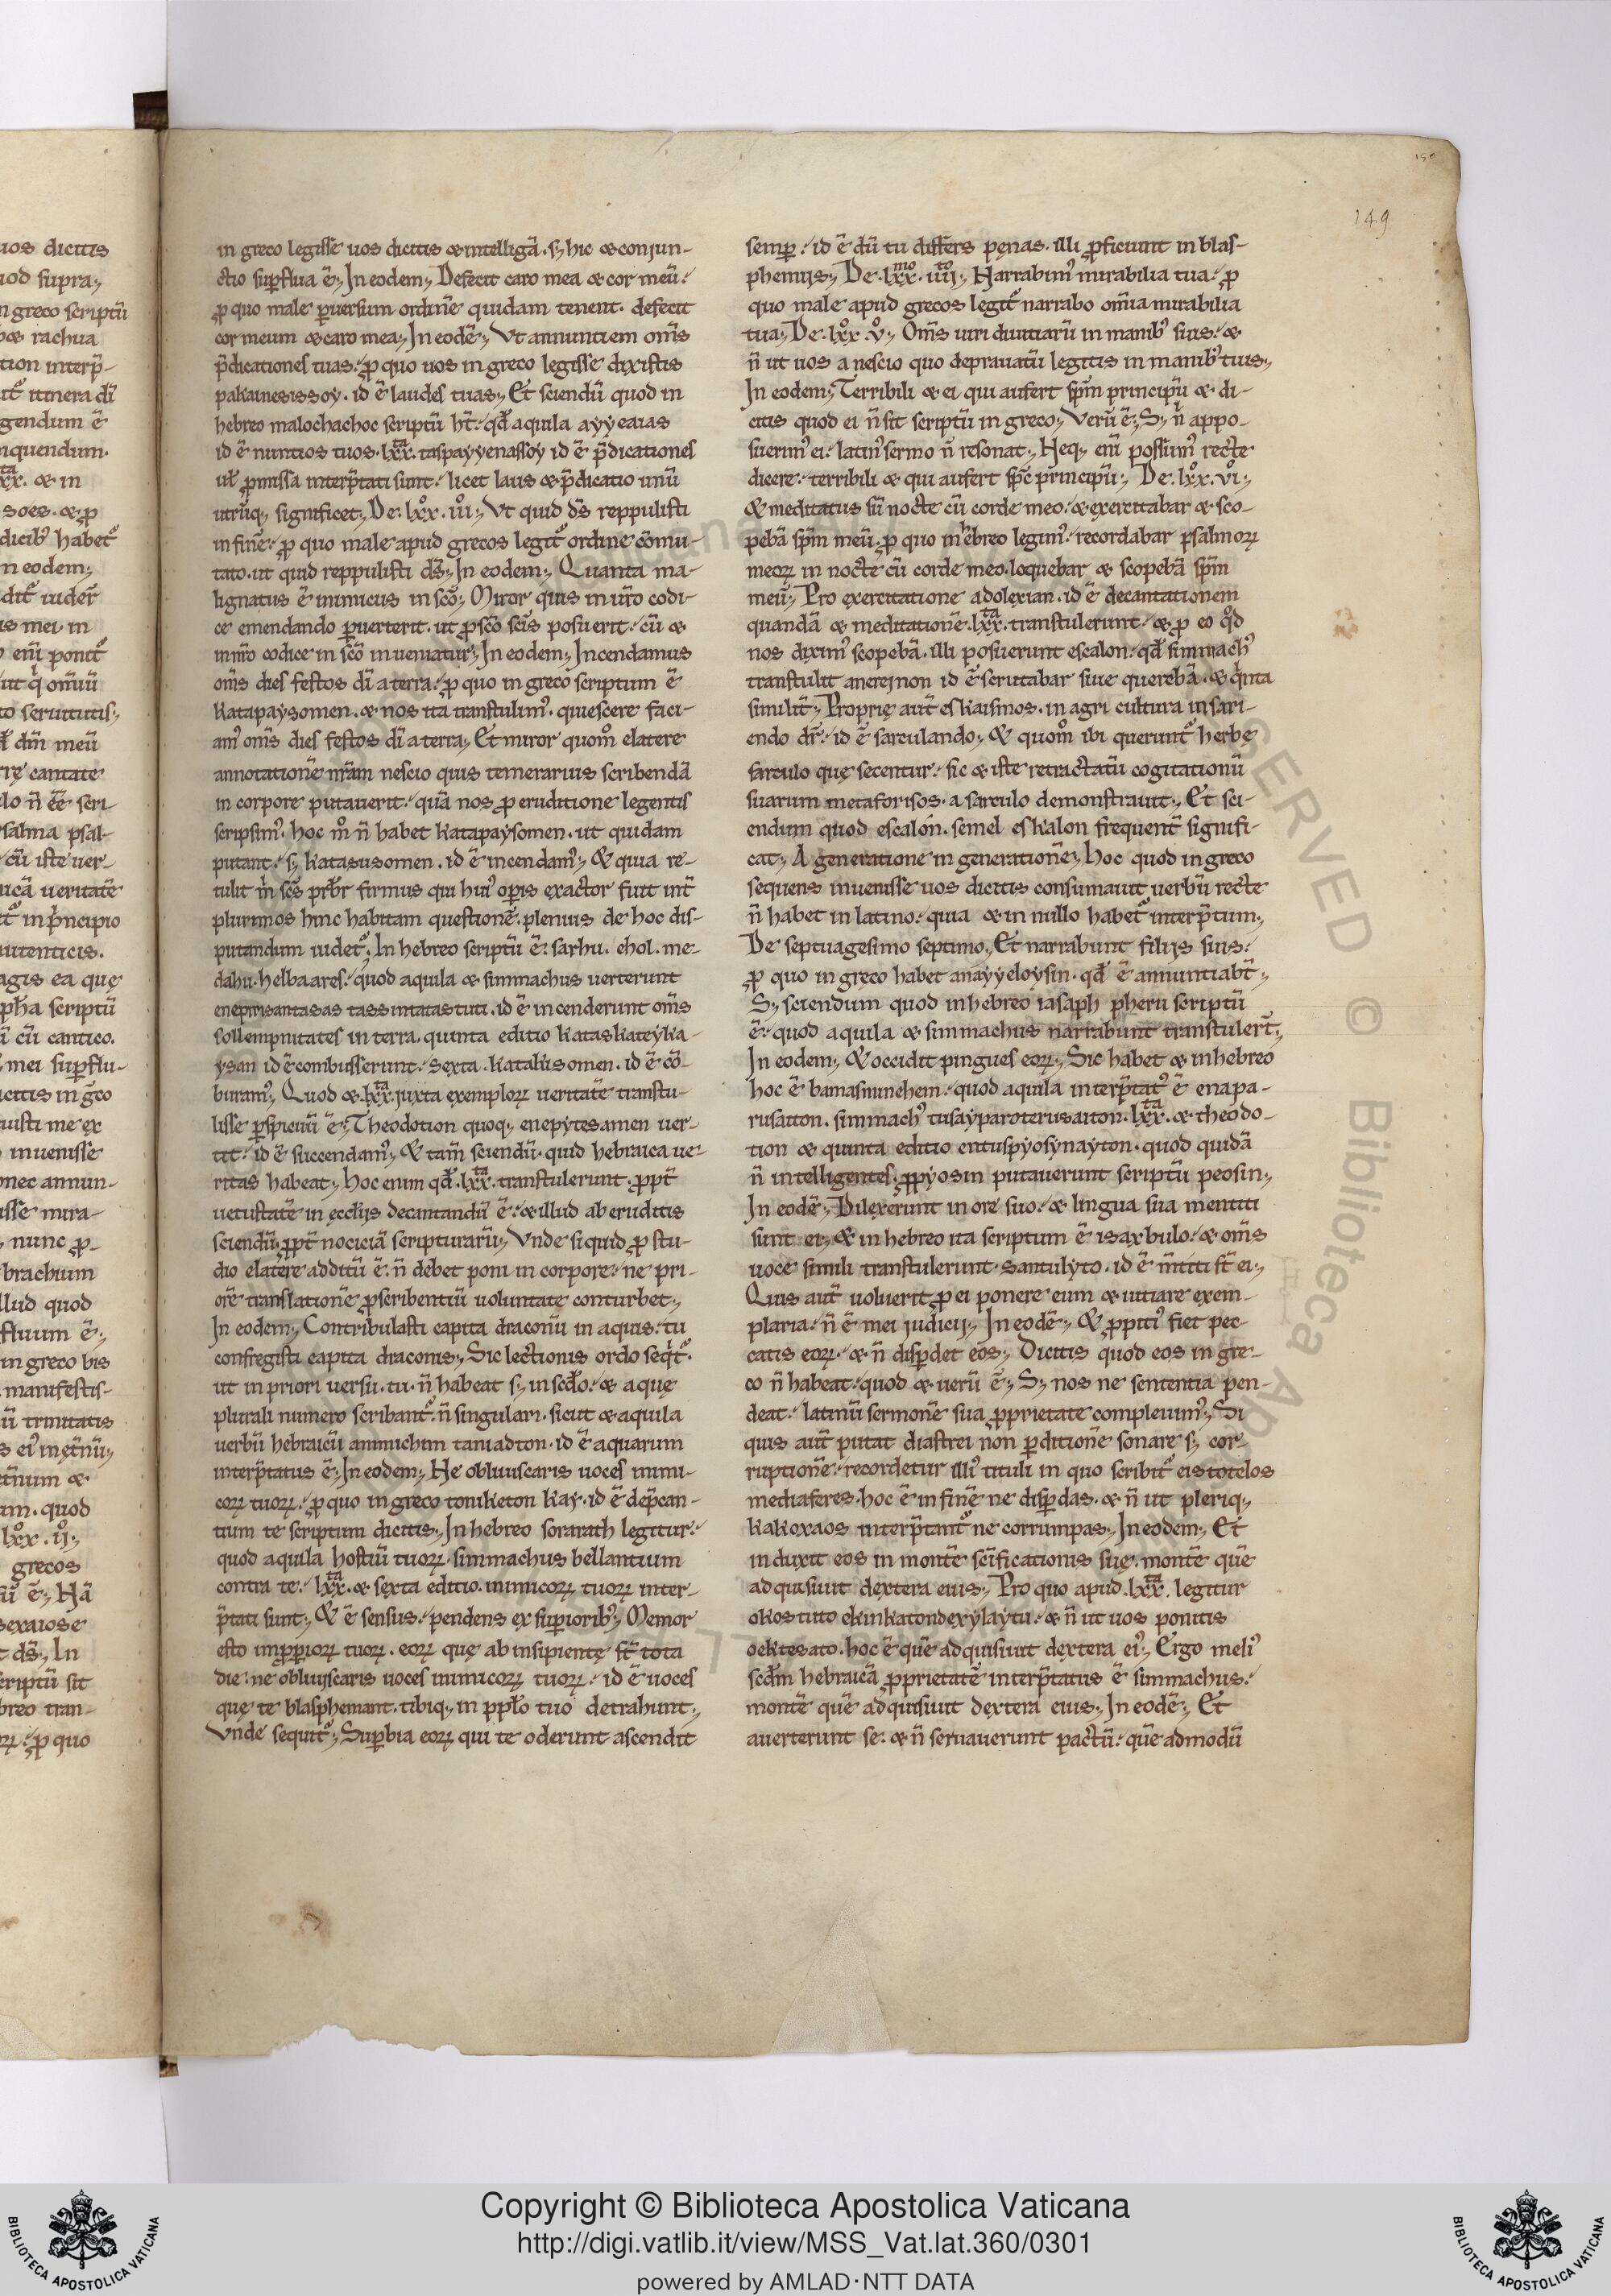 uos dictis
uod supra.,
in greco scriptũ
rachua
tion interp̃-
itinera dĩ
gendum ẽ
nquendum.
xx. & in
soes. & ꝓ
dicibꝰ habet᷑
n eodem.,
is mei. in
enĩ ponit᷑
to seruitutis.,
dm̃ meũ
rę cantate
lo ñ ẽe scri-
psalma psal-
cũ iste uer-
icã ueritatẽ
in pⁱncipio
autenticis.
agis ea quę
scriptũ
cũ cantico.
mei suꝑflu-
icitis in g̃co
uisti me ex
inuenisse
onec annun-
isse mira-
nunc ꝓ-
brachium
llud quod
fluum ẽ.,
in greco bis
manifestis-
ũ trinitatis
um. quod
lxx. ij.,
grecos
sexaiose
ds̃., In
scriptũ sit
breo tran-
ꝓ quo
in greco legisse uos dicitis & intelligã. s; hic & conjun-
ctio suꝑflua ẽ., In eodem., Defecit caro mea & cor meũ.
ꝓ quo male ꝑuersum ordinẽ quidam tenent. defecit
cor meum & caro mea., In eodẽ., Vt annuntiem om̃s
p̃dicationes tuas. ꝓ quo uos in greco legisse dixistis
pakainesissoy. id ẽ laudes tuas., Et sciendũ quod in
hebreo malochachoc scriptũ ht̃. qd̃ aquila ayyeaias
id ẽ nuntios tuos. lxx^ta. taspayyenassoy id ẽ p̃dicationes
ul̃ ꝓmissa interp̃tati sunt. licet laus & p̃dicatio unũ
utrũq; significet., De. lxx°. iii°., Vt quid ds̃ reppulisti
in finẽ. ꝓ quo male apud grecos legit᷑ ordine cõmu-
tato. ut quid reppulisti ds̃., In eodem., Quanta ma-
lignatus ẽ inimicus in sc̃o., Miror quis in ur̃o codi-
ce emendando ꝑuerterit. ut ꝓ sc̃o sc̃is posuerit. cũ &
in nr̃o codice in sc̃o inueniatur., In eodem., Incendamus
om̃s dies festos dĩ a terra. ꝓ quo in greco scriptum ẽ
katapaysomen. & nos ita transtulimꝰ. quiescere faci-
amꝰ om̃s dies festos dĩ a terra., Et miror quom° elatere
annotationẽ nr̃am nescio quis temerarius scribendã
in corpore putauerit. quã nos ꝓ eruditione legentis
scripsimꝰ. hoc m° ñ habet katapaysomen. ut quidam
putant. s; katasusomen. id ẽ incendamꝰ., & quia re-
tulit m̃ sc̃s pr̃br firmus qui huiꝰ oꝑis exactor fuit int̃
plurimos hinc habitam questionẽ. plenius de hoc dis-
putandum uidet᷑. In hebreo scriptũ ẽ. sarhu. ehol. me-
dahu. helbaares. quod aquila & simmachus uerterunt
enepirisantasas tass intatastuti. id ẽ incenderunt om̃s
sollempnitates in terra. quinta editio kataskateyka-
ysan id ẽ combusserunt. sexta. katakusomen. id ẽ cõ-
buramꝰ., Quod & lxx^ta. juxta exemploꝝ ueritatẽ transtu-
lisse ꝑspicuũ ẽ., Theodotion quoq; enepytesamen uer-
tit. id ẽ succendamꝰ., & tam̃ sciendũ. quid hebraica ue-
ritas habeat., Hoc enim qd̃. lxx^ta. transtulerunt. ꝓpt̃
uetustatẽ in ecclijs decantandũ ẽ. & illud ab eruditis
sciendũ. ꝓpt̃ nociciã scripturarũ., Vnde si quid ꝓ stu-
dio elatere additũ ẽ. ñ debet poni in corpore. ne pri-
orẽ translationẽ ꝓ scribentiũ uoluntate conturbet.,
In eodem., Contribulasti capita draconũ in aquis. tu
confregisti capita draconis., Sic lectionis ordo seqⁱt᷑.
ut in priori uersu. tu. ñ habeat s; in scd̃o. & aquę
plurali numero scribant᷑. ñ singulari. sicut & aquila
uerbũ hebraicũ ammichim taniadton. id ẽ aquarum
interp̃tatus ẽ., In eodem., Ne obliuiscaris uoces inimi-
coꝝ tuoꝝ. ꝓ quo in greco toniketon kay. id ẽ dep̃can-
tium te scriptum dicitis., In hebreo sorarath legitur.
quod aquila hostiũ tuoꝝ. simmachus bellantium
contra te. lxx^ta. & sexta editio. inimicoꝝ tuoꝝ inter-
p̃tati sunt., & ẽ sensus. pendens ex suꝑioribꝰ., Memor
esto impꝓꝑioꝝ tuoꝝ. eoꝝ quę ab insipientę st̃ tota
die. ne obliuiscaris uoces inimicoꝝ tuoꝝ. id ẽ uoces
quę te blasphemant. tibiq; in ppl̃o tuo detrahunt.,
Vnde sequit᷑., Suꝑbia eoꝝ qui te oderunt ascendit
150
149
semꝑ. id ẽ dũ tu differs pęnas. illi ꝓficiunt in blas-
phemijs., De. lxx^mo. iiij^to., Narrabimꝰ mirabilia tua. ꝓ
quo male apud grecos legit᷑ narrabo omĩa mirabilia
tua., De. lxx°. v°., Om̃s uiri diuitiarũ in manibꝰ suis. &
ñ ut uos a nescio quo deprauatũ legitis in manibꝰ tuis.,
In eodem., Terribili & ei qui aufert sp̃m principũ &. di-
citis quod ei ñ sit scriptũ in greco., Verũ ẽ., S; nⁱ appo-
suerimꝰ ei. latinꝰ sermo ñ resonat., Neq; enĩ possumꝰ recte
dicere. terribili & qui aufert sp̃c principũ., De. lxx°. vi°.,
& meditatus sũ nocte cũ corde meo. & exercitabar & sco-
pebã sp̃m meũ. ꝓ quo in hebreo legimꝰ. recordabar psalmoꝝ
meoꝝ in nocte cũ corde meo. loquebar & scopebã sp̃m
meũ., Pro exercitatione adolexian. id ẽ decantationem
quandã & meditationẽ. lxx^ta. transtulerunt. & ꝓ eo qd̊
nos diximꝰ scopebã. illi posuerunt escalon. qd̃ simmachꝰ
transtulit anerejnon id ẽ scrutabar siue querebã. & qⁱnta
similit̃., Proprię aut̃ eskaismos. in agri cultura in sari-
endo dr̃. id ẽ sarculando., & quom° ibi querunt᷑ herbę
sarculo quę secentur. sic & iste retractatũ cogitationũ
suarum metaforisos. a sarculo demonstrauit., Et sci-
endum quod escalon. semel eskalon frequent̃ signifi-
cat., A generatione in generationẽ., hoc quod in greco
sequens inuenisse uos dicitis consumauit uerbũ recte
ñ habet in latino. quia & in nullo habet᷑ interp̃tum.,
De septuagesimo septimo., Et narrabunt filijs suis.
ꝓ quo in greco habet anayyeloysin. qd̃ ẽ annuntiabt̃.,
S; sciendum quod in hebreo iasaph pheru scriptũ
ẽ. quod aquila & simmachus narrabunt transtulert̃.,
In eodem., & occidit pingues eoꝝ., Sic habet & in hebreo
hoc ẽ bamasmnehem. quod aquila interp̃tatꝰ ẽ enapa-
rusaiton. simmachꝰ tusayparoterusaiton. lxx^ta. & theodo-
tion & quinta editio entuspyosynayton. quod quidã
ñ intelligentes. ꝓpyosin putauerunt scriptũ peosin.,
In eodẽ., Dilexerunt in ore suo. & lingua sua mentiti
sunt ei., & in hebreo ita scriptum ẽ isaxbulo. & om̃s
uoce simili transtulerunt. santulyto. id ẽ m̃titi st̃ ei.,
Quis aut̃ uoluerit ꝓ ei ponere eum & uitiare exem-
plaria. ñ ẽ mei judicij., In eodẽ., & ꝓpitiꝰ fiet pec-
catis eoꝝ. & ñ disꝑdet eos., Dicitis quod eos in gre-
co ñ habeat. quod & uerũ ẽ., S; nos ne sententia pen-
deat. latinũ sermonẽ sua ꝓprietate compleuimꝰ., Si
quis aut̃ putat diastrei non ꝑditionẽ sonare s; cor-
ruptionẽ. recordetur illiꝰ tituli in quo scribit᷑ eistotelos
mediaferes. hoc ẽ in finẽ ne disꝑdas. & ñ ut pleriq;
kakoxaos interp̃tant᷑ ne corrumpas., In eodem., Et
induxit eos in montẽ sc̃ificationis suę. montẽ quẽ
adquisiuit dextera eius., Pro quo apud. lxx^ta. legitur
okostuto ekinkatondexylaytu. & ñ ut uos ponitis
oektesato. hoc ẽ quẽ adquisiuit dextera eiꝰ., Ergo meliꝰ
scd̃m hebraicã ꝓprietatẽ interp̃tatus ẽ simmachus.
montẽ quẽ adquisiuit dextera eius., In eodẽ., Et
auerterunt se. & ñ seruauerunt pactũ. quẽ admodũ
Copyright © Biblioteca Apostolica Vaticana
http://digi.vatlib.it/view/MSS_Vat.lat.360/0301
powered by AMLAD·NTT DATA
BIBLIOTECA APOSTOLICA VATICANA
BIBLIOTECA APOSTOLICA VATICANA